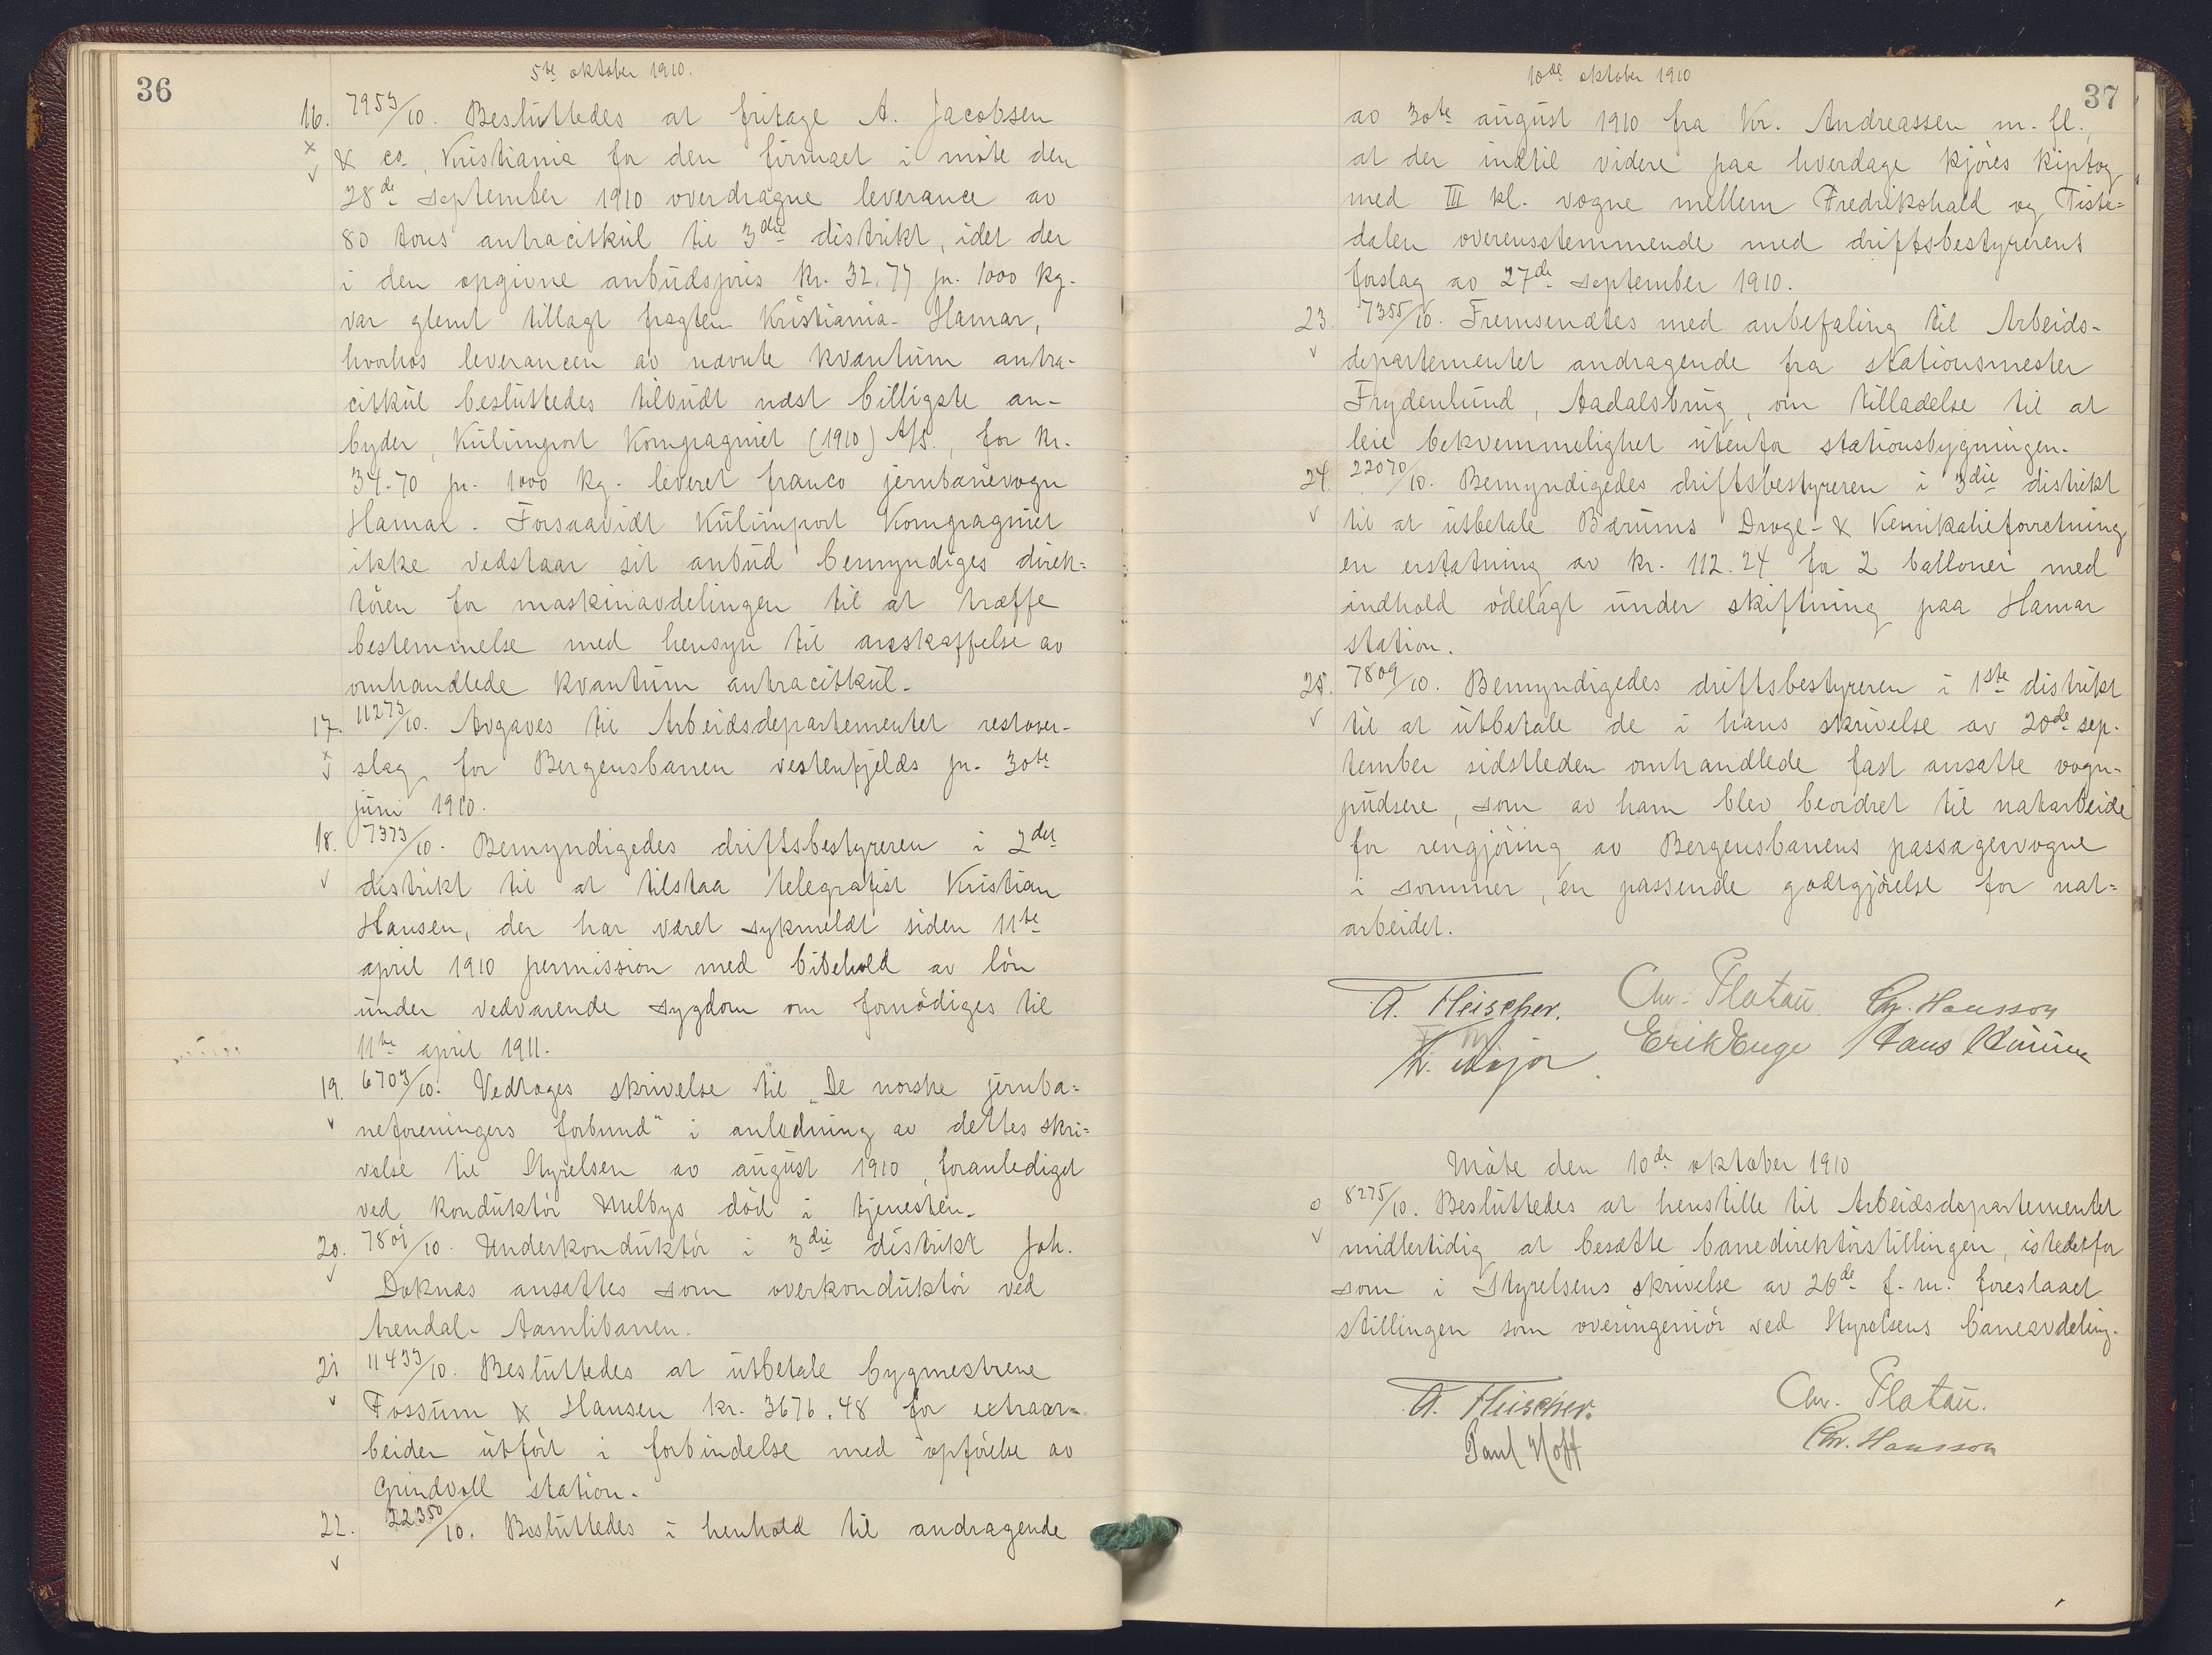 36
5te oktober 1910.
16. 7953/10. Besluttedes at fritage A. Jacobsen
& co, Kristiania for den firmaet i møte den
28de september 1910 overdragne leverance av
80 tons antracitkul til 3die distrikt, idet der
i den opgivne anbudspris kr. 32.77 pr. 1000 kg.
var glemt tillagt fragten Kristiania- Hamar,
hvorhos leverancen av nævnte kvantum antra-
citkul besluttedes tilbudt næst billigste an-
byder, Kulimport Kompagniet (1910) A/S., for kr.
34.70 pr. 1000 kg. leveret franco jernbanevogn
Hamar. Forsaavidt Kulimport Kompagniet
ikke vedstaar sit anbud bemyndiges direk=
tøren for maskinavdelingen til at træffe
bestemmelse med hensyn til anskaffelse av
omhandlede kvantum antracitkul.
17. 11273/10. Avgaves til Arbeidsdepartementet restover-
slag for Bergensbanen vestenfjelds pr. 30te
juni 1910.
18. 7373/10. Bemyndigedes driftsbestyreren i 2det
distrikt til at tilstaa telegrafist Kristian
Hansen, der har været sykmeldt siden 11te
april 1910 permission med bibehold av løn
under vedvarende sygdom om fornødiges til
11te april 1911.
19. 6703/10. Vedtoges skrivelse til „De norske jernba=
neforeningers forbund" i anledning av dettes skri=
velse til Styrelsen av august 1910, foranlediget
ved konduktør Melbys død i tjenesten.
20. 7801/10. Underkonduktør i 3die distrikt Joh.
Doknæs ansattes som overkonduktør ved
Arendal- Aamlibanen.
21 11433/10. Besluttedes at utbetale bygmestrene
Fossum & Hansen kr. 3676.48 for extraar=
beider utført i forbindelse med opførelse av
Grindvoll station.
22. 22350/10. Besluttedes i henhold til andragende
37
10de oktober 1910
av 30te august 1910 fra Kr. Andreassen m. fl.,
at der indtil videre paa hverdage kjøres kiptog
med III kl. vogne mellem Fredrikshald og Tiste=
dalen overensstemmende med driftsbestyrerens
forslag av 27de september 1910.
23. 7355/10. Fremsendtes med anbefaling til Arbeids-
departementet andragende fra stationsmester
Frydenlund, Aadalsbrug, om tilladelse til at
leie bekvemmelighet utenfor stationsbygningen.
24. 22070/10. Bemyndigedes driftsbestyreren i 3die distrikt
til at utbetale Bærums Droge- & Kemikalieforretning
en erstatning av kr. 112.24 for 2 balloner med
indhold ødelagt under skiftning paa Hamar
station.
25. 7809/10. Bemyndigedes driftsbestyreren i 1ste distrikt
til at utbetale de i hans skrivelse av 20de sep-
tember sidstleden omhandlede fast ansatte vogn-
pudsere, som av ham blev beordret til natarbeide
for rengjøring av Bergensbanens passagervogne
i sommer, en passende godtgjørelse for nat=
arbeidet.
A. Fleischer. Chr. Platou Chr. Hansson
Erik Enge Hans
Møte den 10de oktober 1910
8275/10. Besluttedes at henstille til Arbeidsdepartementet
midlertidig at besætte banedirektørstillingen, istedetfor
som i Styrelsens skrivelse av 26de f. m. foreslaaet
stillingen som overingeniør ved Styrelsens baneavdeling.
A. Fleischer. Chr. Platou.
Paul Hoff Chr. Hansson